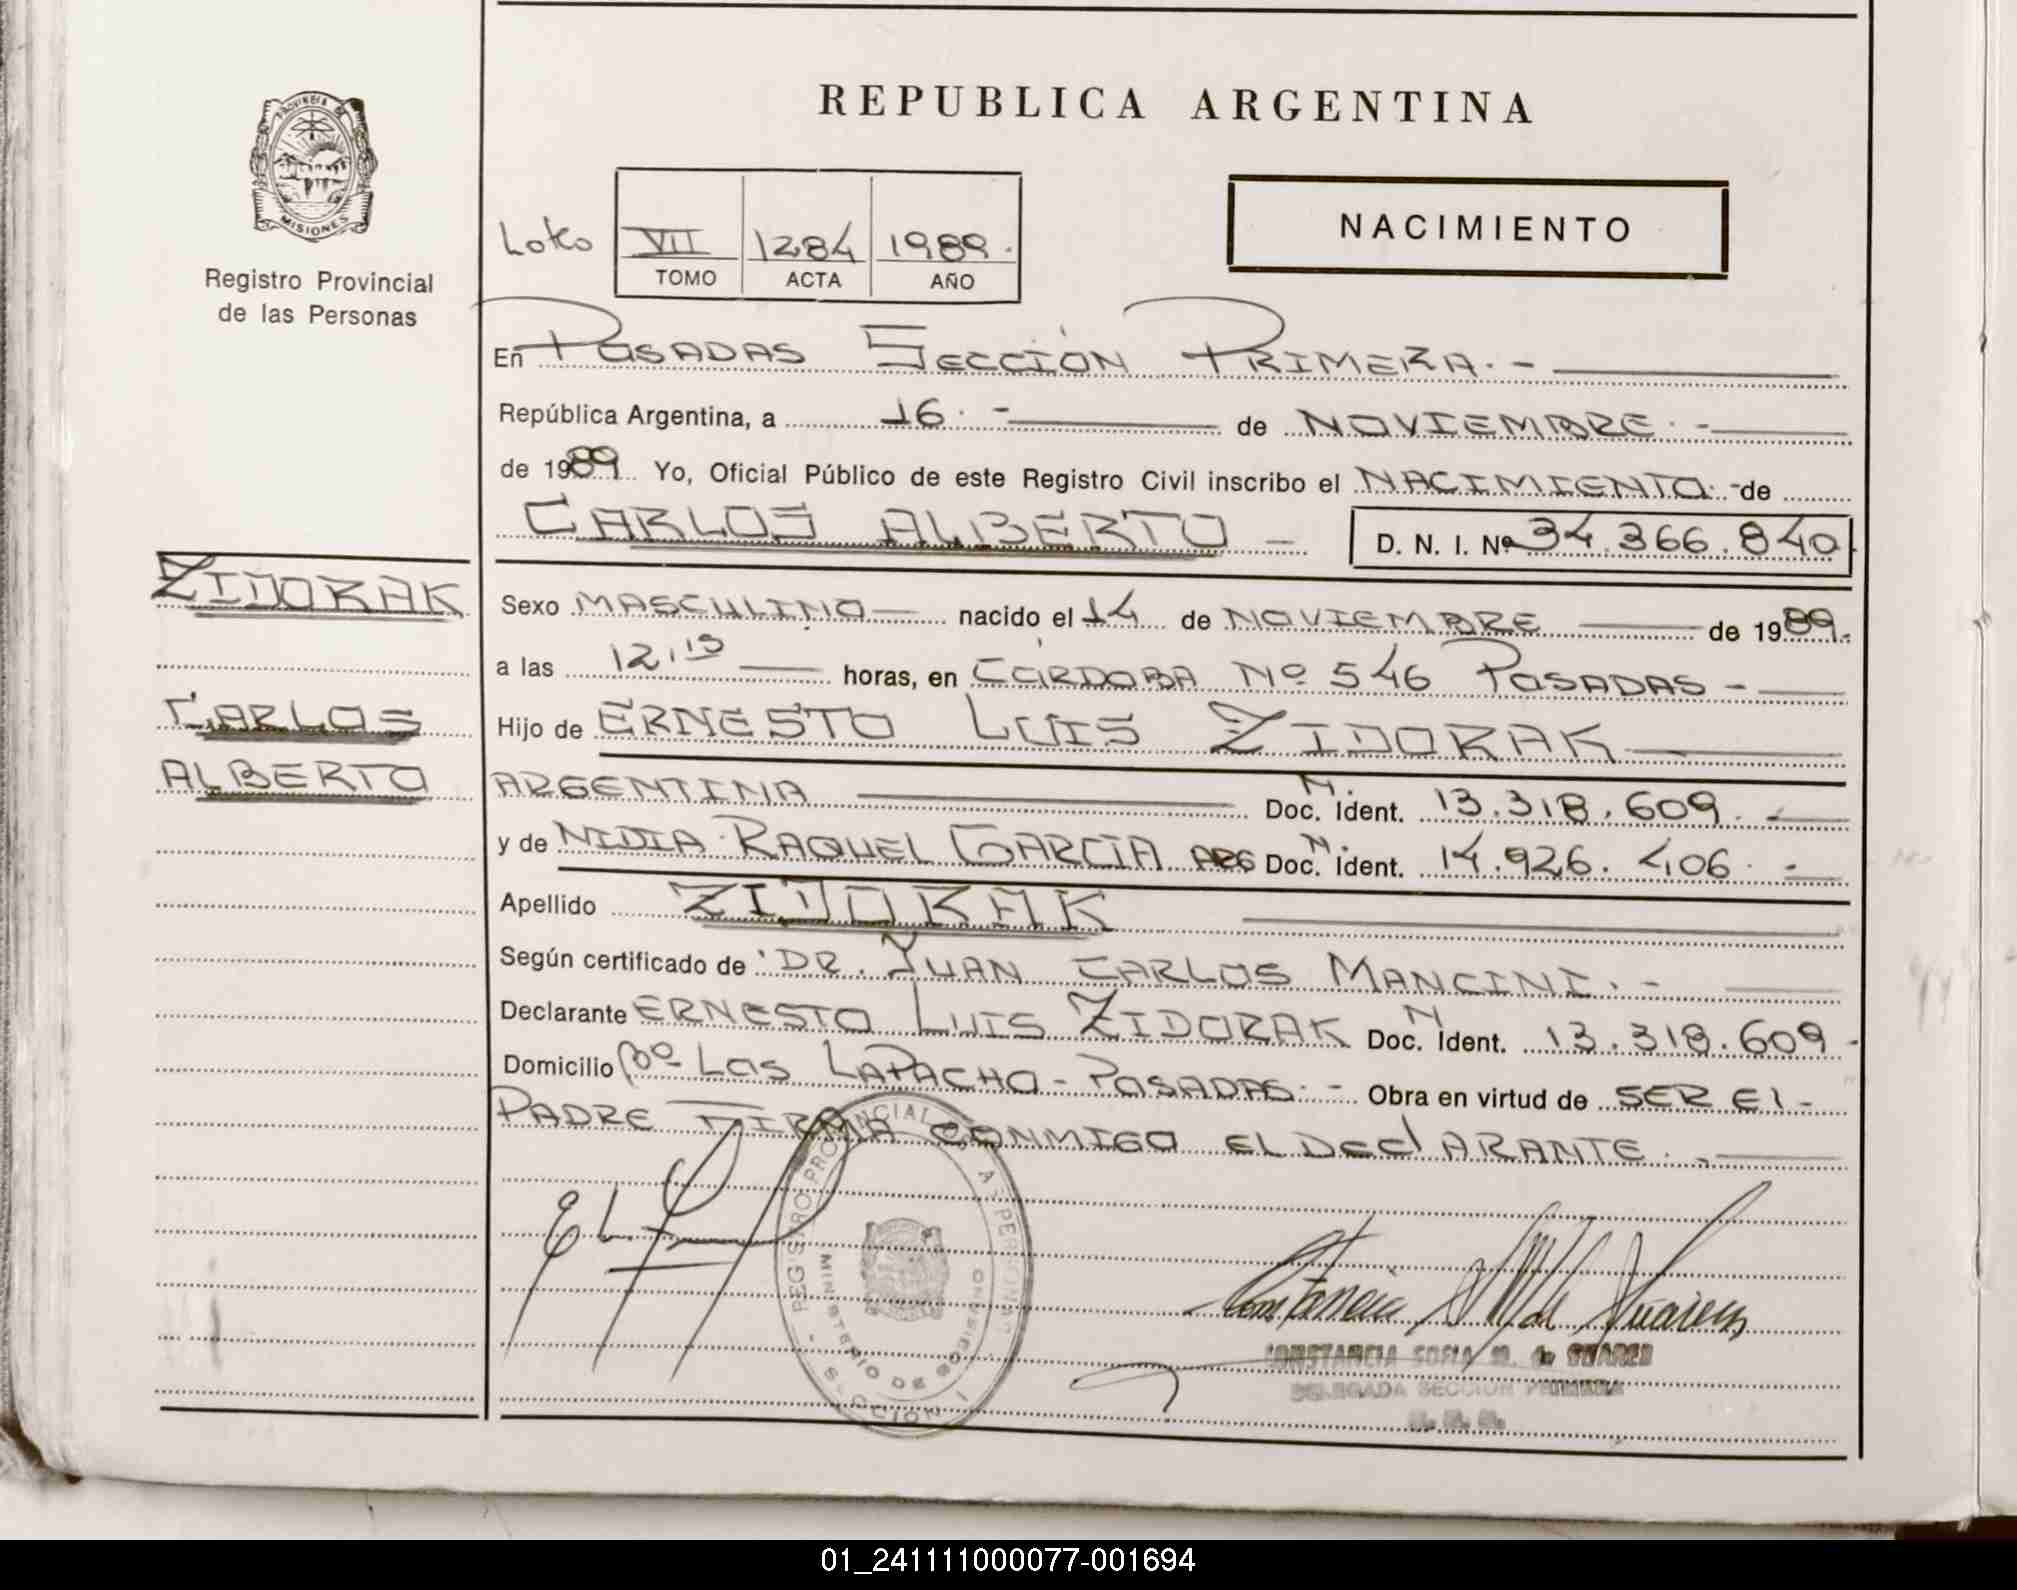 PROVINCIA DE
MISIONES
Registro Provincial
de las Personas
REPUBLICA ARGENTINA
NACIMIENTO
VII 1284 1989.
TOMO ACTA AÑO
En POSADAS SECCIÓN PRIMERA.-
República Argentina, a 16.- de NOVIEMBRE.-
de 1989. Yo, Oficial Público de este Registro Civil inscribo el NACIMIENTO.- de
CARLOS ALBERTO - D. N. I. Nº 34.366.840
ZIDORAK
CARLOS
ALBERTO
Sexo MASCULINO nacido el 14 de NOVIEMBRE de 1989.
a las 12,15 horas, en CÓRDOBA Nº 546 POSADAS -
Hijo de ERNESTO LUIS ZIDORAK
ARGENTINA Doc. N. Ident. 13.318.609.-
y de NIDIA RAQUEL GARCÍA ARG Doc. N. Ident. 14.926.406.-
Apellido ZIDORAK
Según certificado de DR. JUAN CARLOS MANCINI.-
Declarante ERNESTO LUIS ZIDORAK Doc. N Ident. 13.318.609-
Domicilio Bº LOS LAPACHO - POSADAS.- Obra en virtud de SER El-
PADRE FIRMA CONMIGO EL DEClARANTE.-
REGISTRO PROVINCIAL DE LAS PERSONAS
MINISTERIO DE GOBIERNO
SECCION 1
CONSTANCIA SOFIA M. de SUAREZ
DELEGADA SECCION PRIMERA
01_241111000077-001694